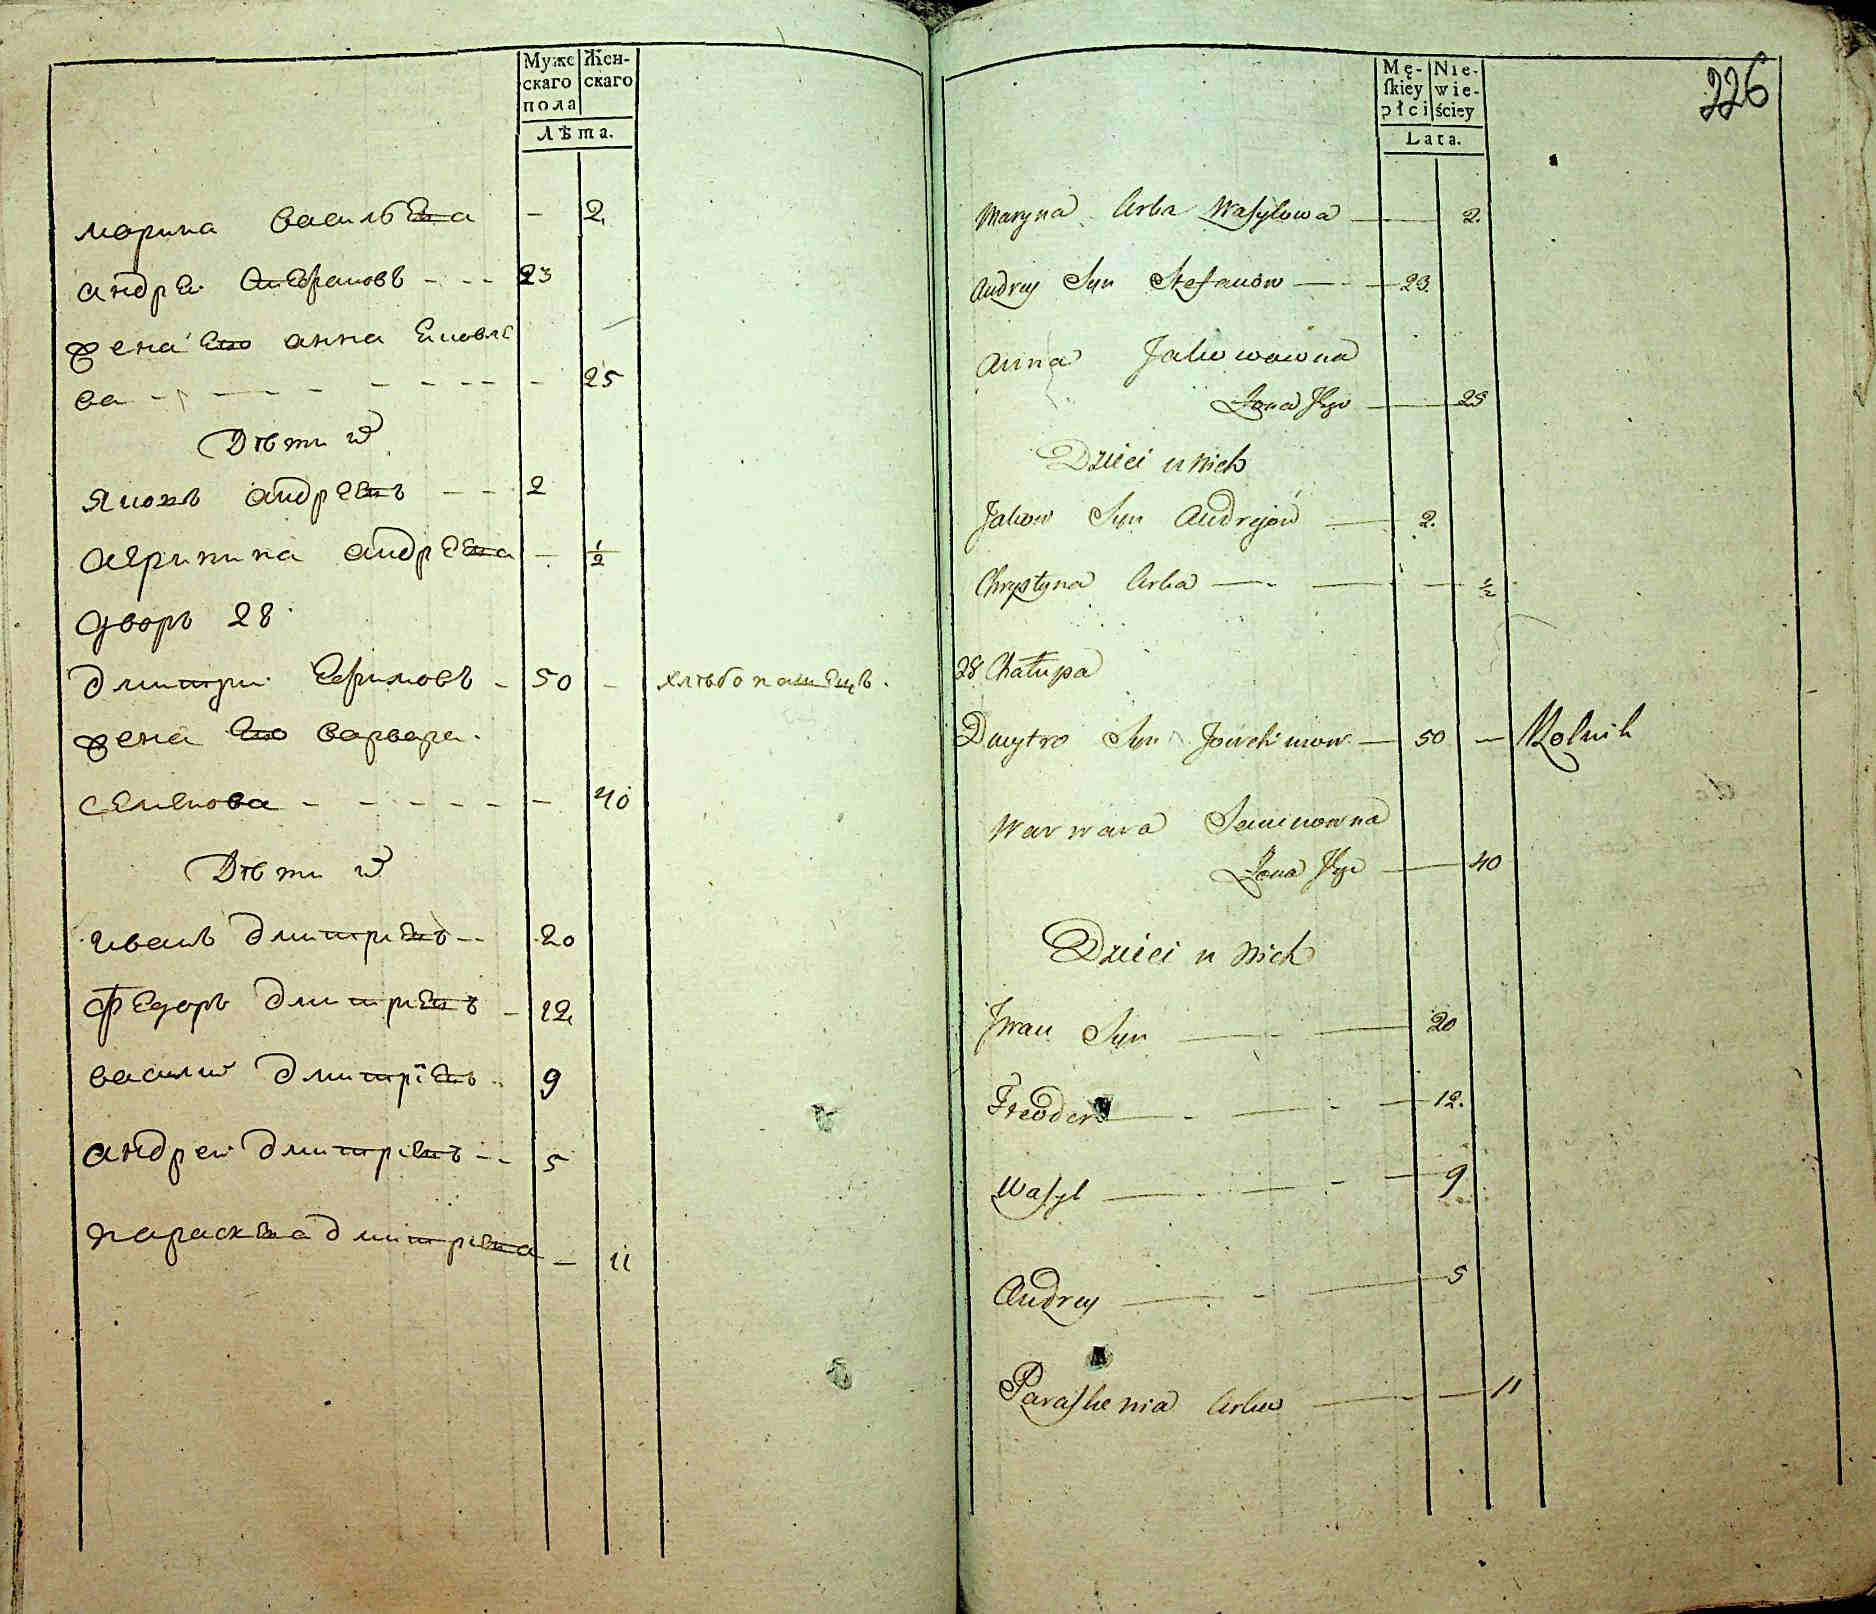 Муже Жен-
скаго скаго
пола
Лѣта.
марина васильева - 2
андрей стефановъ - - - 23
жена его анна яковле
ва - - - - - - - 25
Дѣти их
яковъ андреевъ - - 2
андреева - 1/2
дворъ 28
дмитрий Ефимовъ - 50 - хлѣбопашецъ.
жена его варвара
семенова - - - - - - 40
Дѣти их
иванъ дмитриевъ - - 20
Федоръ дмитриевъ - 12
василий дмитріевъ - 9
андрей дмитриевъ - - 5
параскева дмитриева - 11
226
Mę- Nie-
skiey wie-
płci ściey
Lata.
Maryna Crka Wasylowa — 2.
Andrey Syn Stefanow — 23.
Anna Jakowowna
Żona Jego — 25
Dzieci u Nich
Jakow Syn Andrejów — 2.
Chrystyna Crka — 1/2
28 Chałupa
Dmytro Syn Jowchimow — 50 — Rolnik
Warwara Semenowna
Żona Jego — 40
Dzieci u Nich
Jwan Syn — 20
Fteoder — 12.
Wasyl — 9
Andrey — 5
Paraskewia Crka — 11